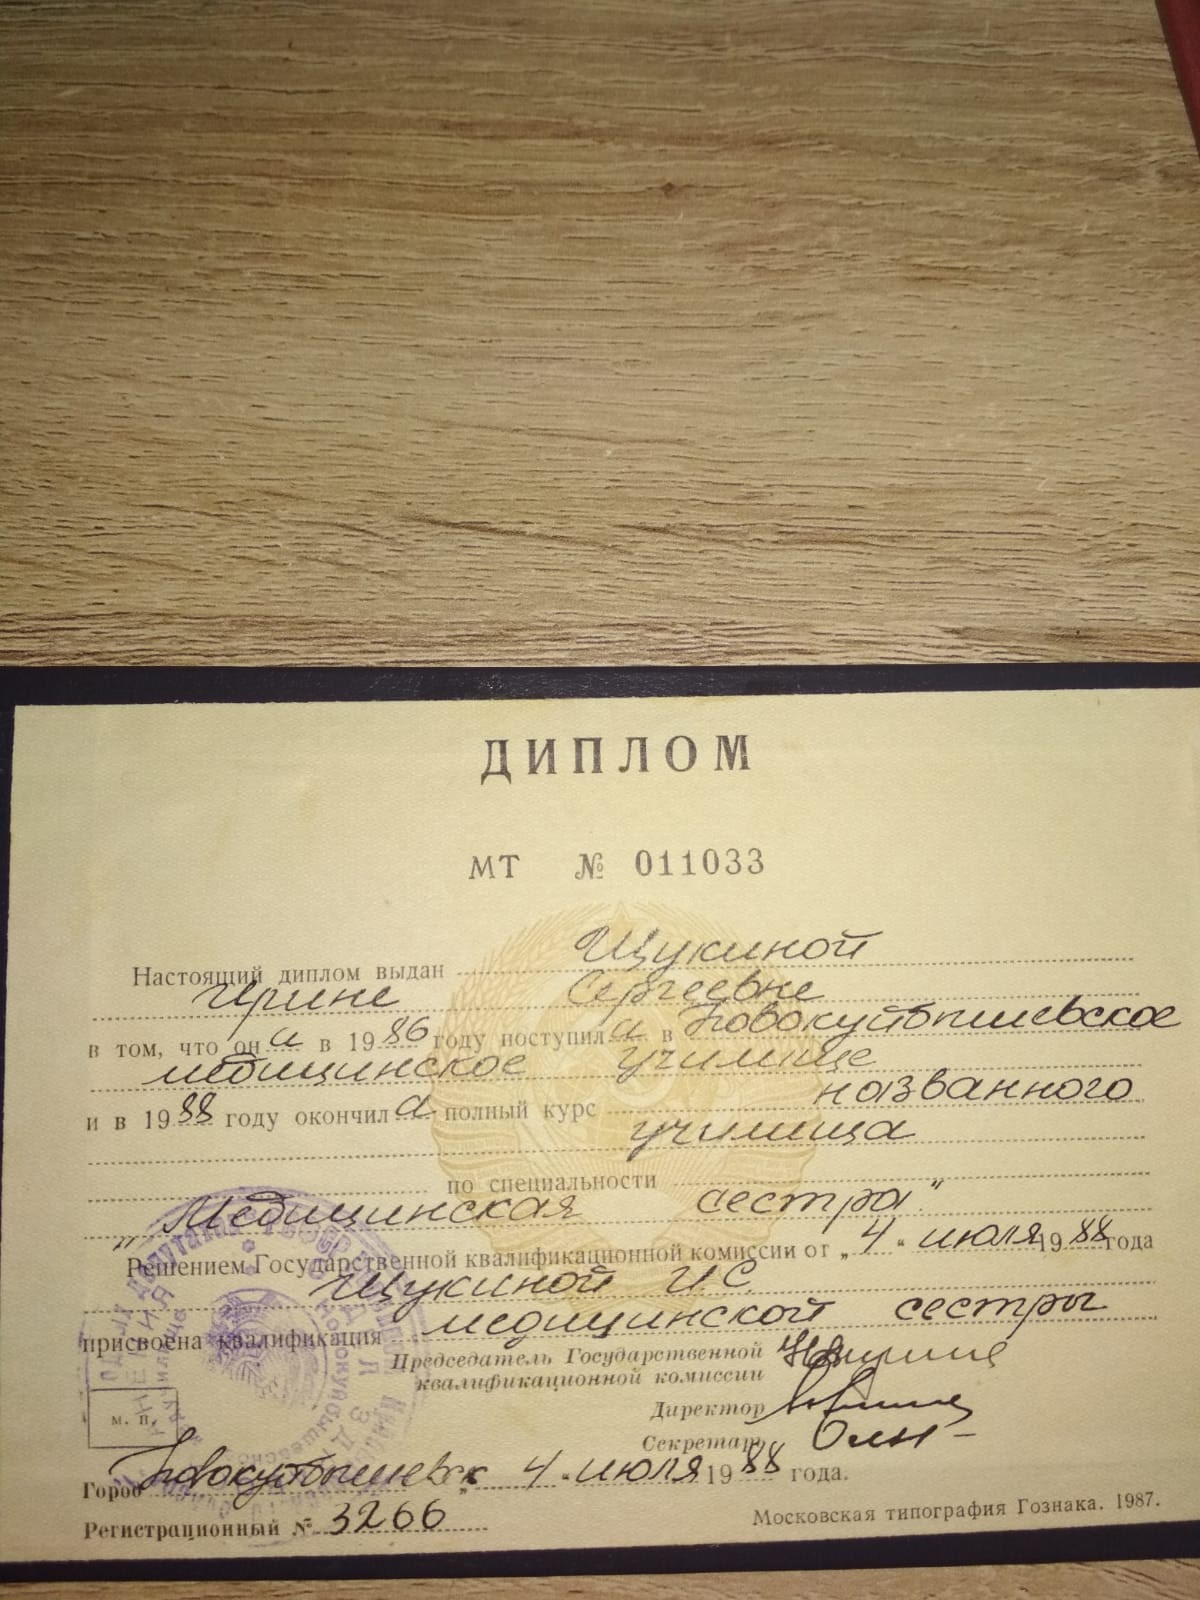 ДИПЛОМ
МТ № 011033
Настоящий диплом выдан Щукиной
Ирине Сергеевне
в том, что она в 1986 году поступила в Новокуйбышевское
медицинское училище
и в 1988 году окончила полный курс названного
училища
по специальности
„Медицинская сестра"
Решением Государственной квалификационной комиссии от „4" июля 1988 года
Щукиной И.С.
присвоена квалификация медицинской сестры
Председатель Государственной
квалификационной комиссии
Директор
Секретарь
м. п.
Город Новокуйбышевск „4" июля 1988 года.
Регистрационный № 3266
Московская типография Гознака. 1987.